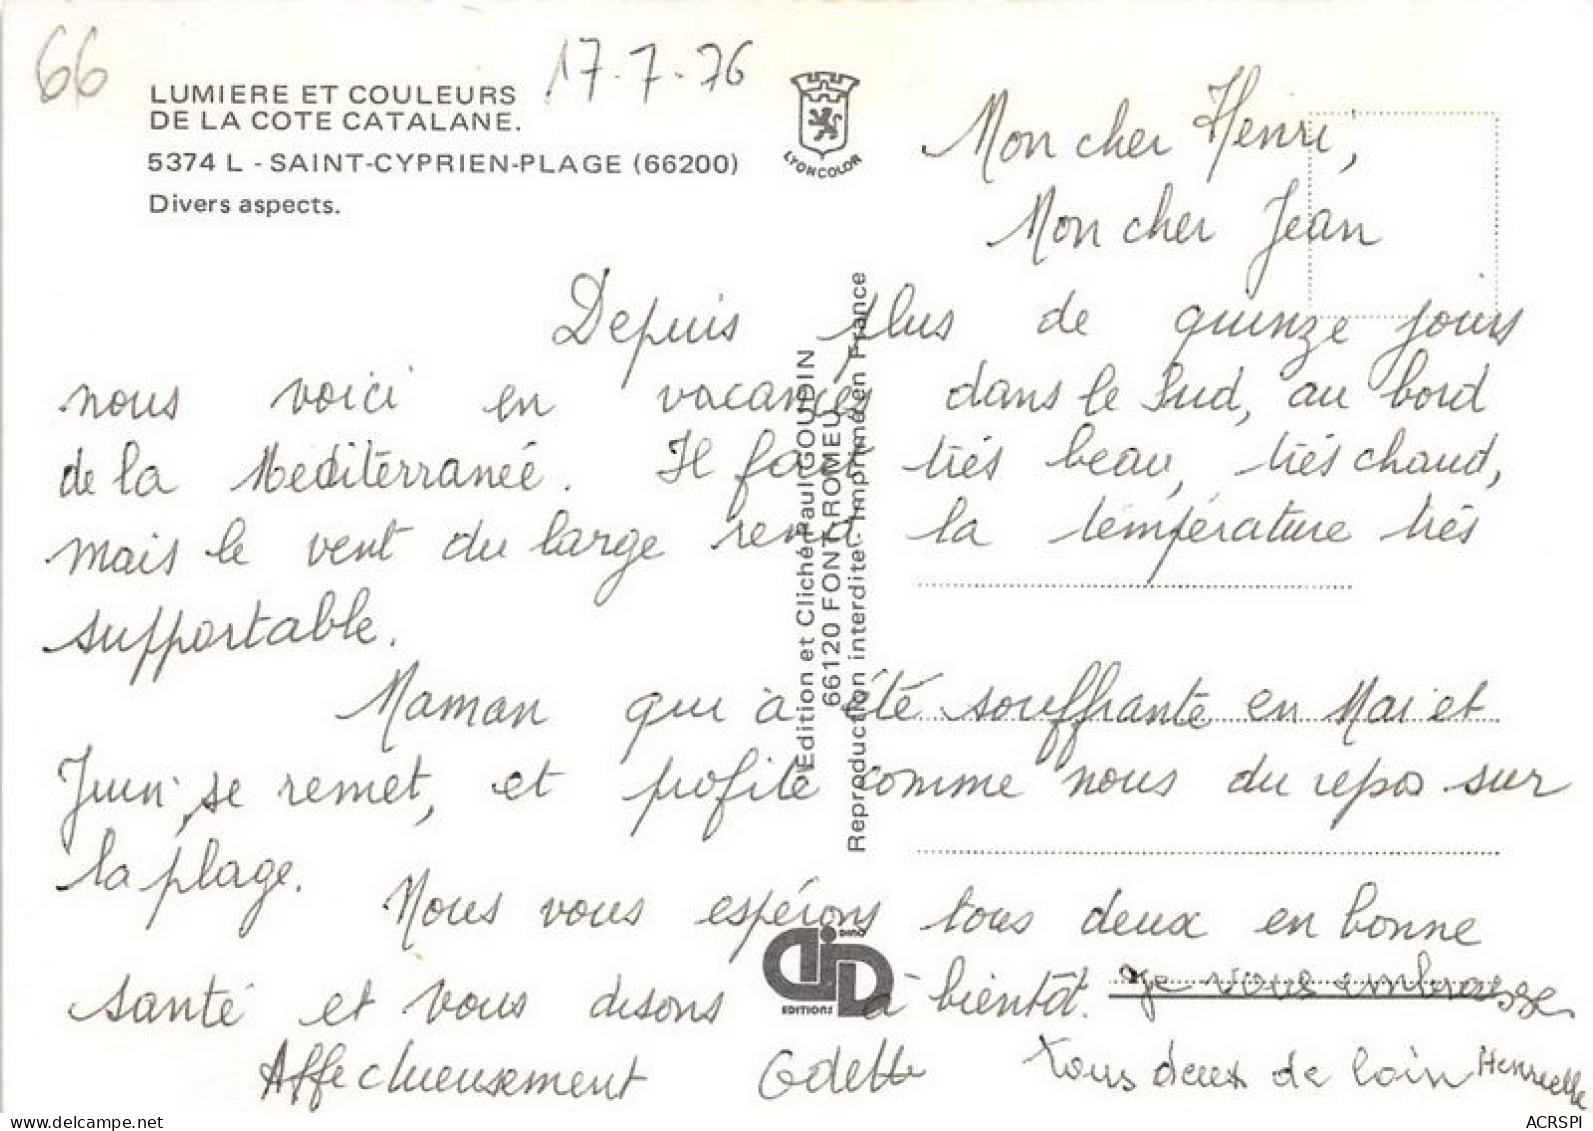 66
17.7.76
LUMIERE ET COULEURS
DE LA COTE CATALANE.
5374 L - SAINT-CYPRIEN-PLAGE (66200)
Divers aspects.
LYONCOLOR
Mon cher Henri,
Mon cher Jean
Depuis plus de quinze jours
nous voici en vacances dans le Sud, au bord
de la Méditérranée. Il fait très beau, très chaud,
mais le vent du large rend la température très
supportable.
Maman qui à été souffrante en Mai et
Juin, se remet, et profite comme nous du repos sur
la plage.
Nous vous espérons tous deux en bonne
santé et vous disons à bientôt. Je vous embrasse
Affectueusement Odette tous deux de loin Henriette
Edition et Cliché Paul GOUDIN
66120 FONT-ROMEU
Reproduction interdite - Imprimé en France
DINO
EDITIONS
ACRSPI